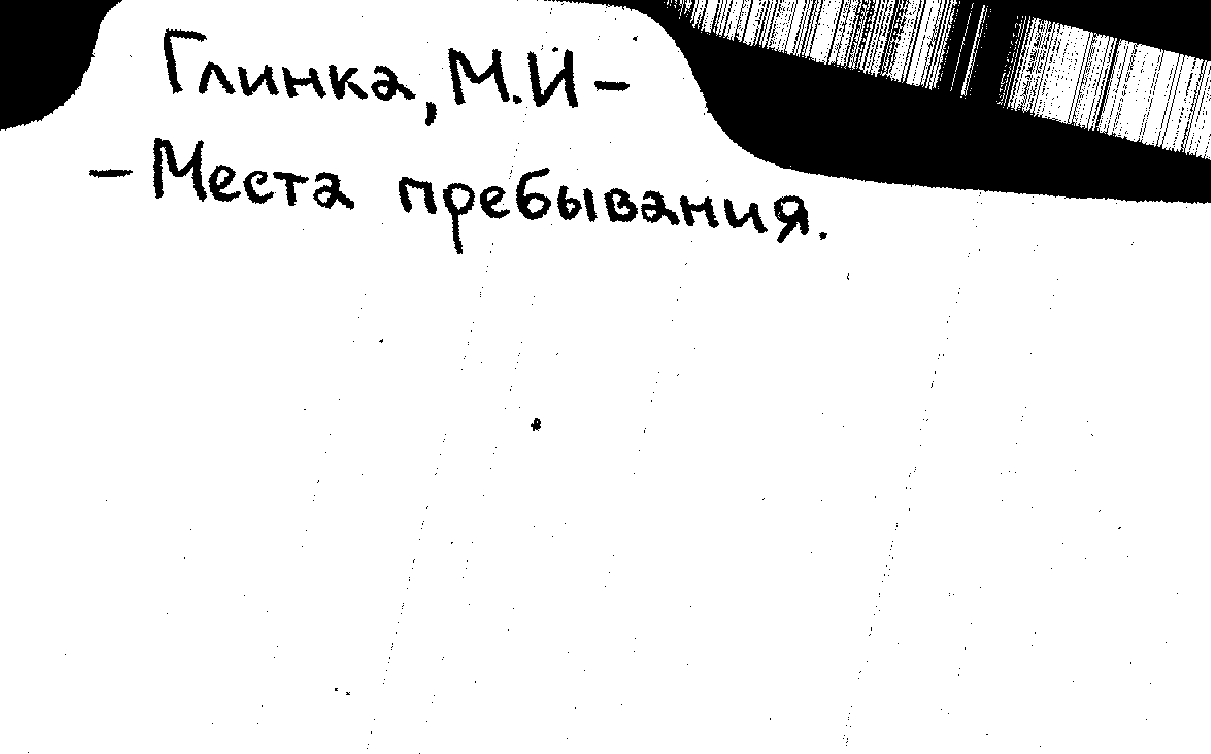 Глинка, М.И –
– Места пребывания.